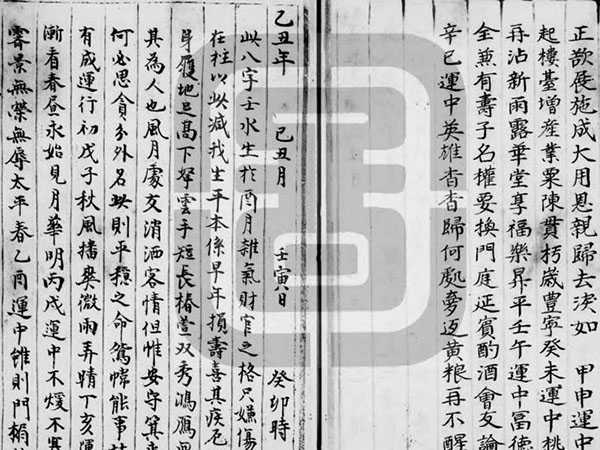 正欲展施成大用恩親歸去淚如　甲申運中
起樓臺增産業粟陳貫朽歲豐寧癸未運中桃
再沾新雨露華堂享福樂昇平壬午運中冨德
全兼有壽子名權要換門庭延賓酌酒會友論
辛巳運中英雄杳杳歸何處夢返黄粮再不醒
乙丑年　己丑月　壬寅日　癸卯時
此八字壬水生扵酉月雜氣財官之格只嫌傷
在柱以此减我生平本係早年損壽喜其疾厄
身獲地足髙下拏雲手短長椿萱双秀鴻鴈
其為人也風月處交消洒客情但惟安守箕
何必思貪分外名此則平穏之命鴛幃能事
有成運行初戊子秋風播爽微雨弄晴丁亥運
漸看春昼永始見月華明丙戌運中不煖不寒
霽景無榮無辱太平春乙酉運中雖則門楣